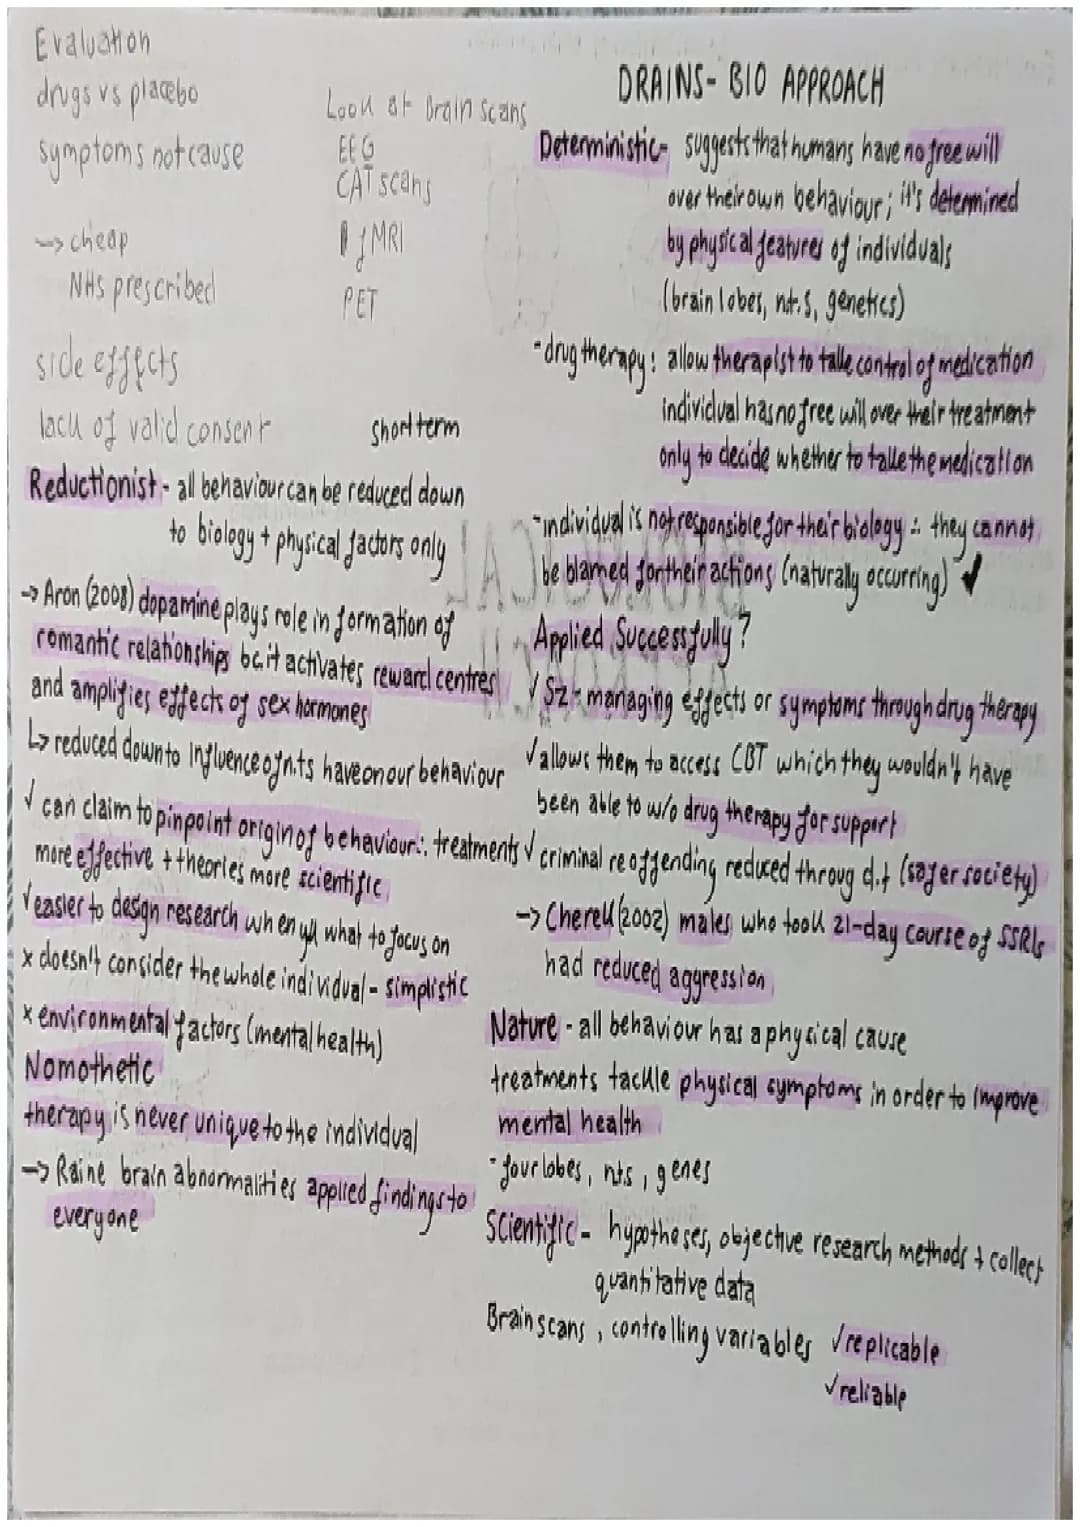 Evaluation
drugs vs placebo
symptoms not cause
-> cheap
NHS prescribed
side effects
lack of valid consent
Look at brain scans
EEG
CAT scans
fMRI
PET
short term
Reductionist - all behaviour can be reduced down
to biology + physical factors only
-> Aron (2008) dopamine plays role in formation of
romantic relationships bc it activates reward centres
and amplifies effects of sex hormones
↳ reduced down to influence of n.ts have on our behaviour
✓ can claim to pinpoint origin of behaviour ∴ treatments
more effective + theories more scientific
✓ easier to design research when what to focus on
x doesn't consider the whole individual - simplistic
x environmental factors (mental health)
Nomothetic
therapy is never unique to the individual
-> Raine brain abnormalities applied findings to
everyone
DRAINS - BIO APPROACH
Deterministic - suggests that humans have no free will
over their own behaviour; it's determined
by physical features of individuals
(brain lobes, n.t.s, genetics)
- drug therapy: allow therapist to take control of medication
individual has no free will over their treatment
only to decide whether to take the medication
- individual is not responsible for their biology ∴ they cannot
be blamed for their actions (naturally occurring) ✓
Applied Successfully?
✓ Sz - managing effects or symptoms through drug therapy
✓ allows them to access CBT which they wouldn't have
been able to w/o drug therapy for support
✓ criminal reoffending reduced throug d.t (safer society)
-> Cherek (2002) males who took 21-day course of SSRIs
had reduced aggression
Nature - all behaviour has a physical cause
treatments tackle physical symptoms in order to improve
mental health
- four lobes, nts, genes
Scientific - hypotheses, objective research methods + collect
quantitative data
Brain scans, controlling variables ✓ replicable
✓ reliable